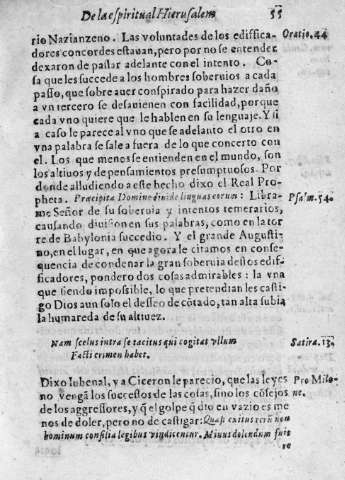 De la espiritual Hierusalem 55
rio Nazianzeno. Las voluntades de los edifica- Oratio. 44
dores concordes estauan, pero por no se entender
dexaron de passar adelante con el intento. Co-
sa que les succede a los hombres soberuios a cada
passo, que sobre auer conspirado para hazer daño
a vn tercero se desauienen con facilidad, porque
cada vno quiere que le hablen en su lenguaje. Y si
a caso le parece al vno que se adelanto el otro en
vna palabra se sale a fuera de lo que concerto con
el. Los que menos se entienden en el mundo, son
los altiuos y de pensamientos presumptuosos. Por
donde alludiendo a este hecho dixo el Real Pro-
pheta. Præcipita Domine diuide linguas eorum: Libra- Psalm. 54.
me Señor de su soberuia y intentos temerarios,
causando diuision en sus palabras, como en la tor
re de Babylonia succedio. Y el grande Augusti-
no, en el lugar, en que agora le citamos en conse-
quencia de condenar la gran soberuia destos edi-
ficadores, pondero dos cosas admirables: la vna
que siendo impossible, lo que pretendian les casti
go Dios aun solo el desseo de cōtado, tan alta subia
la humareda de su altiuez.
Nam scelus intra se tacitus qui cogitat vllum Satira. 13.
Facti crimen habet.
Dixo Iubenal, y a Ciceron le parecio, que las leyes Pro Milo-
no vengā los successos de las cosas, sino los cōsejos ne.
de los aggressores, y q̄ el golpe q̄ dio en vazio es me
nos de doler, pero no de castigar: Quasi exitus rerū non
hominum consilia legibus vindicentur. Minus dolendum fuit
re